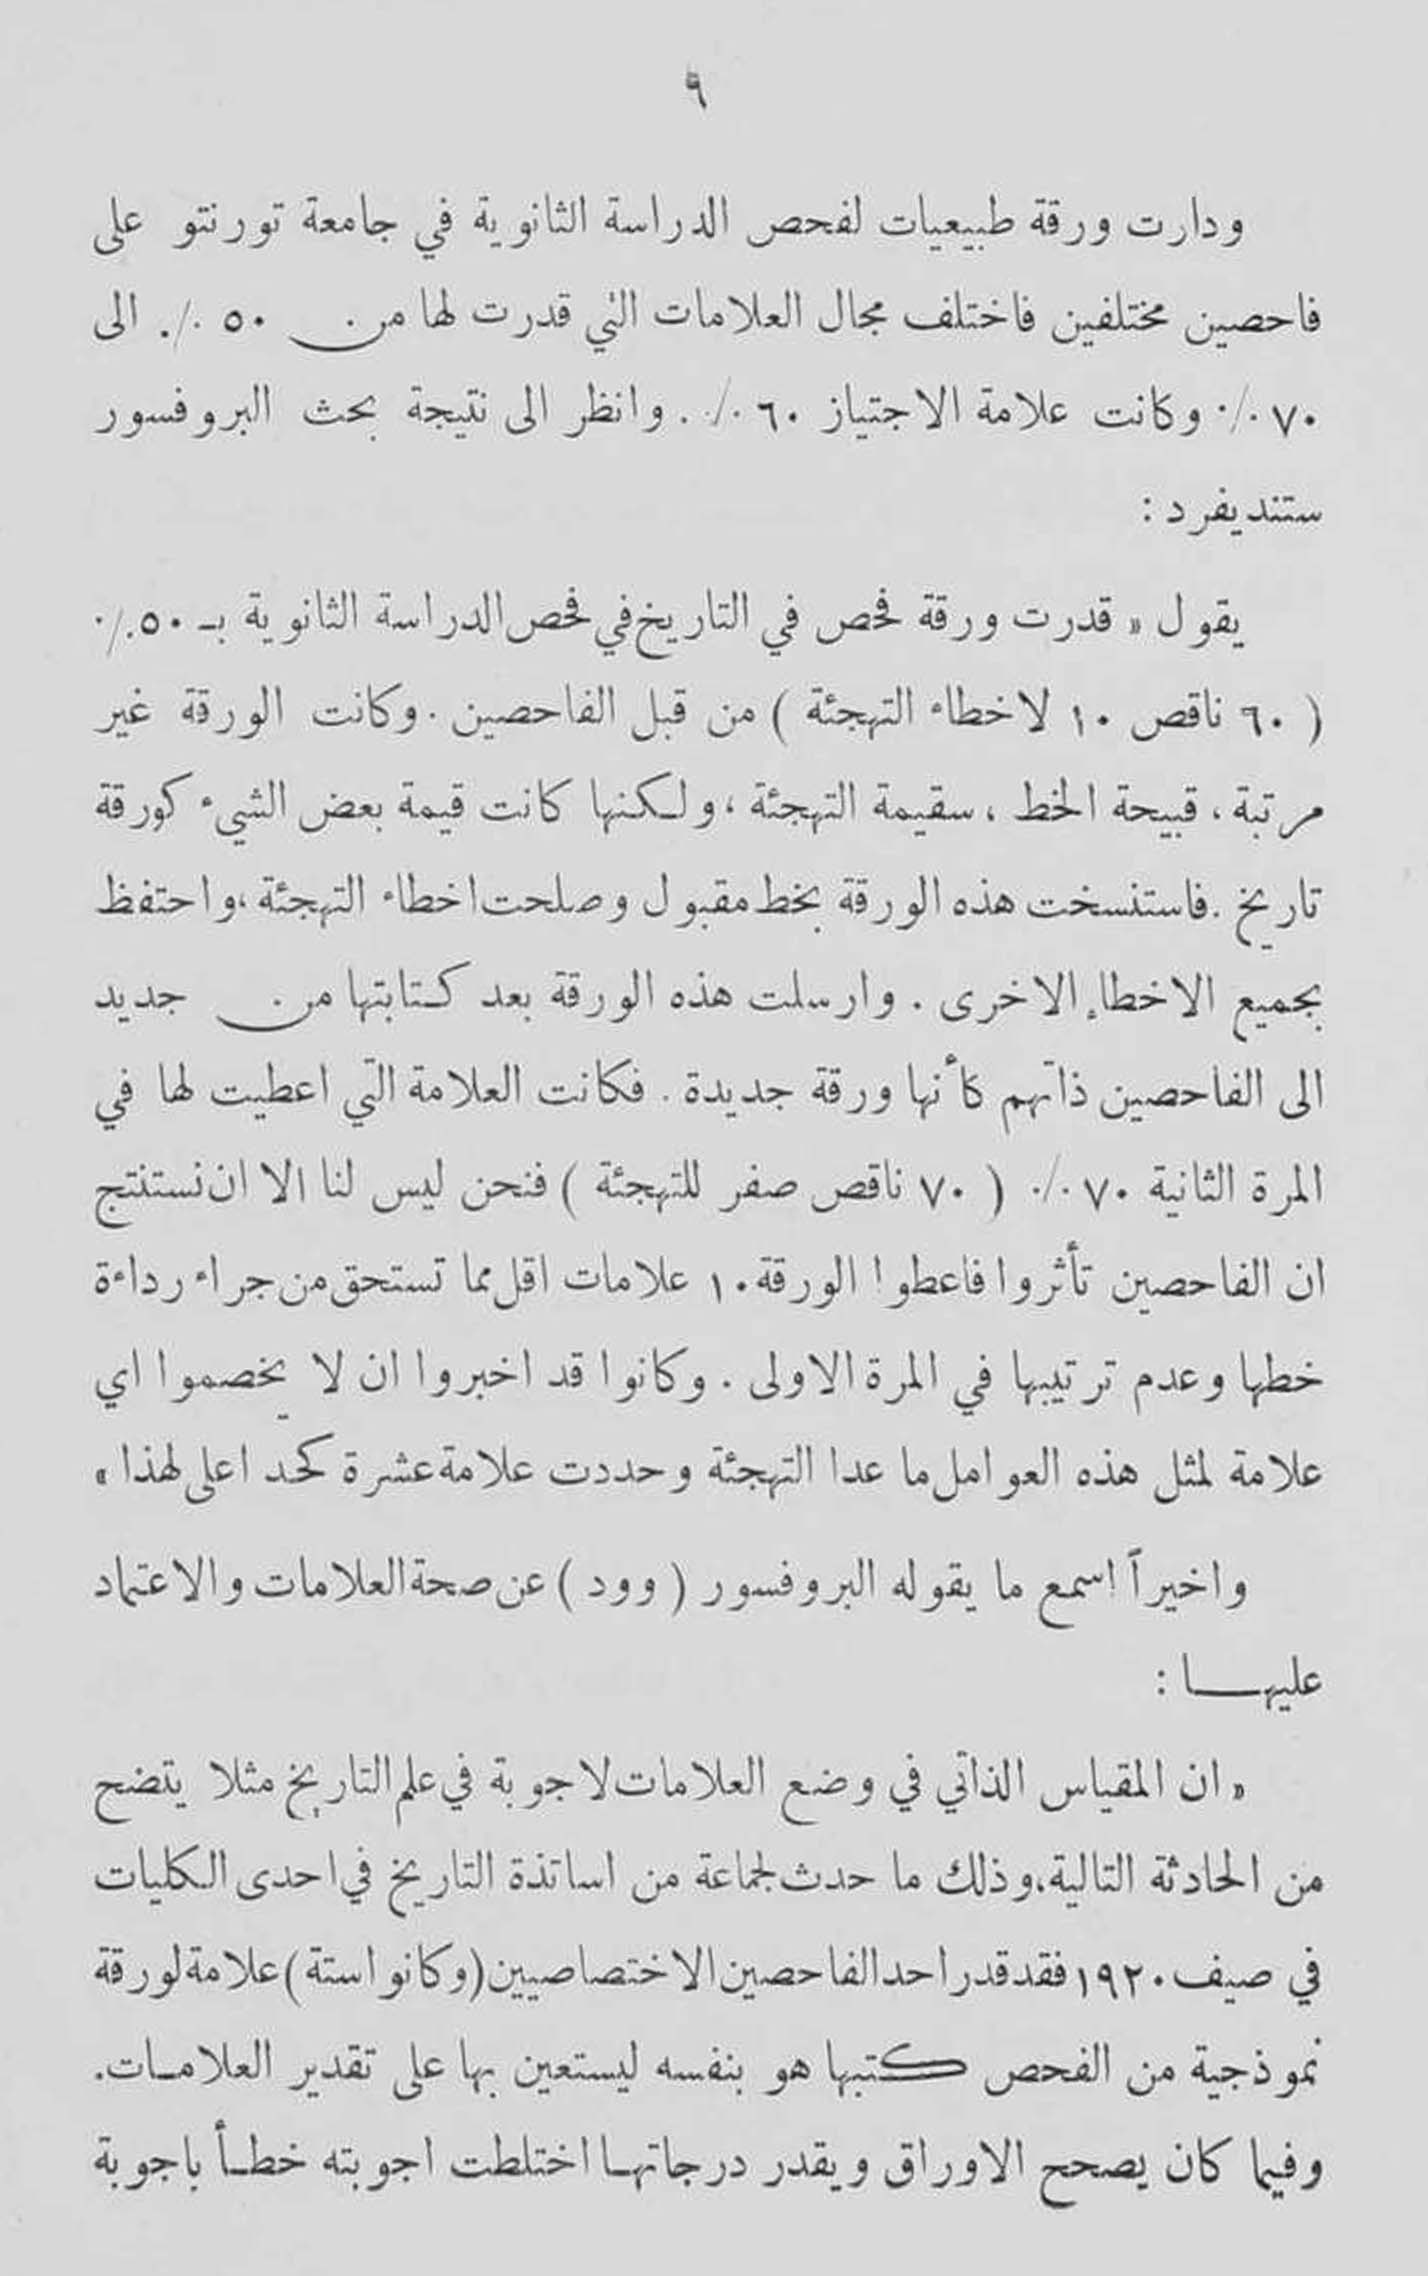 ٩
ودارت ورقة طبيعيات لفحص الدراسة الثانوية في جامعة تورنتو على
فاحصين مختلفين فاختلف مجال العلامات التي قدرت لها من ٥٠ ٪. الى
٧٠ ٪ وكانت علامة الاجتياز ٦٠ ٪. وانظر الى نتيجة بحث البروفسور
ستنديفرد :
يقول « قدرت ورقة فحص في التاريخ في فحص الدراسة الثانوية بـ ٥٠٪
( ٦٠ ناقص ١٠ لاخطاء التهجئة ) من قبل الفاحصين . وكانت الورقة غير
مرتبة ، قبيحة الخط ، سقيمة التهجئة ، ولكنها كانت قيمة بعض الشيء كورقة
تاريخ . فاستنسخت هذه الورقة بخط مقبول وصلحت اخطاء التهجئة ، واحتفظ
بجميع الاخطاء الاخرى . وارسلت هذه الورقة بعد كتابتها من جديد
الى الفاحصين ذاتهم كأنها ورقة جديدة . فكانت العلامة التي اعطيت لها في
المرة الثانية ٧٠ ٪ ( ٧٠ ناقص صفر للتهجئة ) فنحن ليس لنا الا ان نستنتج
ان الفاحصين تأثروا فاعطوا الورقة ١٠ علامات اقل مما تستحق من جراء رداءة
خطها وعدم ترتيبها في المرة الاولى . وكانوا قد اخبروا ان لا يخصموا اي
علامة لمثل هذه العوامل ما عدا التهجئة وحددت علامة عشرة كحد اعلى لهذا »
واخيراً اسمع ما يقوله البروفسور ( وود ) عن صحة العلامات والاعتماد
عليهـــا :
« ان المقياس الذاتي في وضع العلامات لاجوبة في علم التاريخ مثلا يتضح
من الحادثة التالية ، وذلك ما حدث لجماعة من اساتذة التاريخ في احدى الكليات
في صيف ١٩٢٠ فقد قدر احد الفاحصين الاختصاصيين (وكانوا ستة) علامة لورقة
نموذجية من الفحص كتبها هو بنفسه ليستعين بها على تقدير العلامـات.
وفيما كان يصحح الاوراق ويقدر درجاتهـا اختلطت اجوبته خطـأ باجوبة